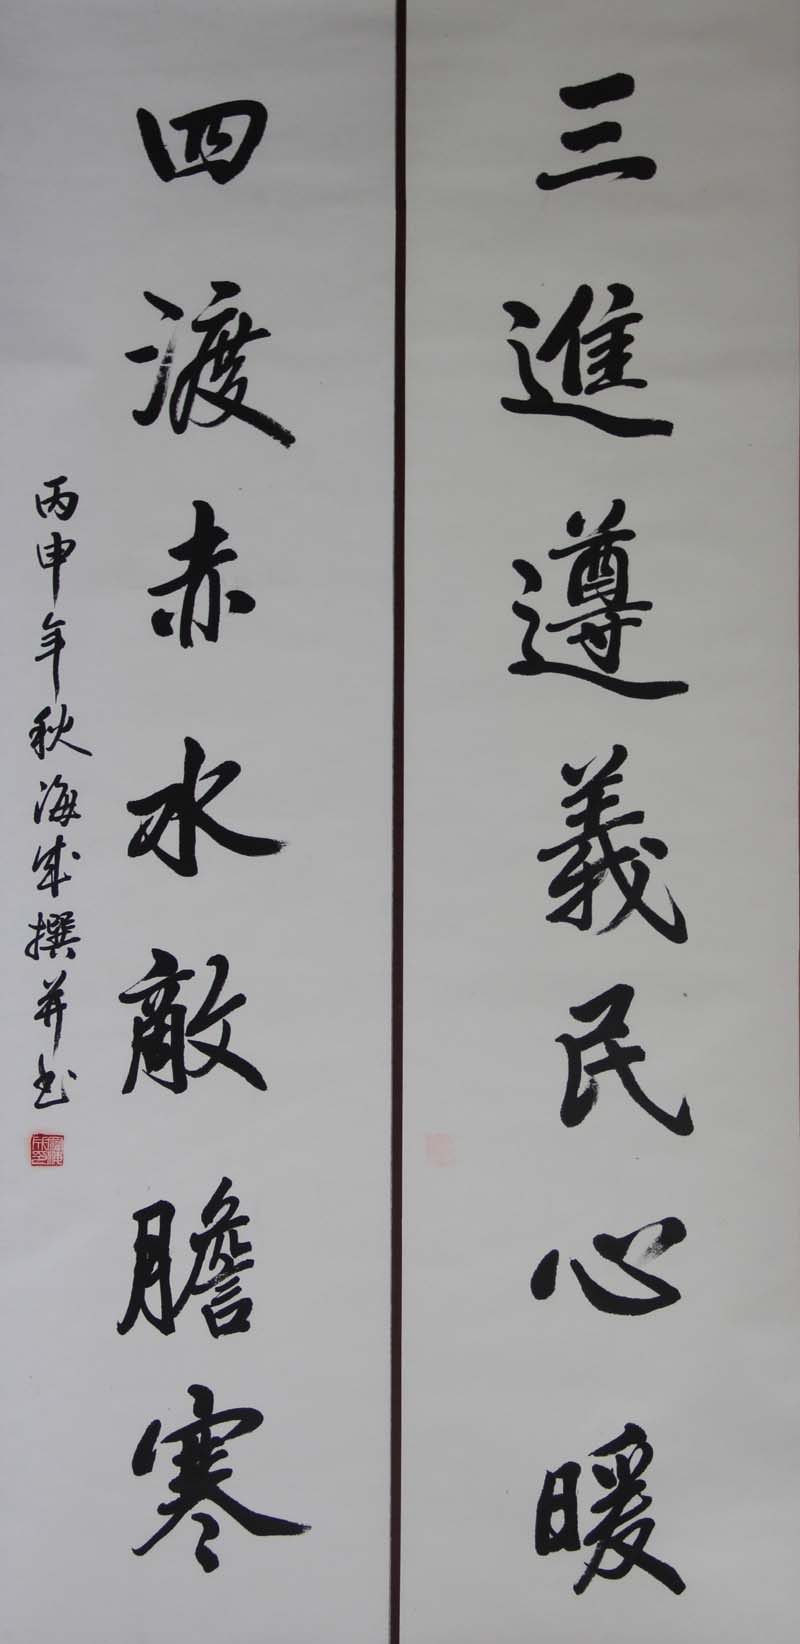 三進遵義民心暖
四渡赤水敵膽寒
丙申年秋海成撰并书